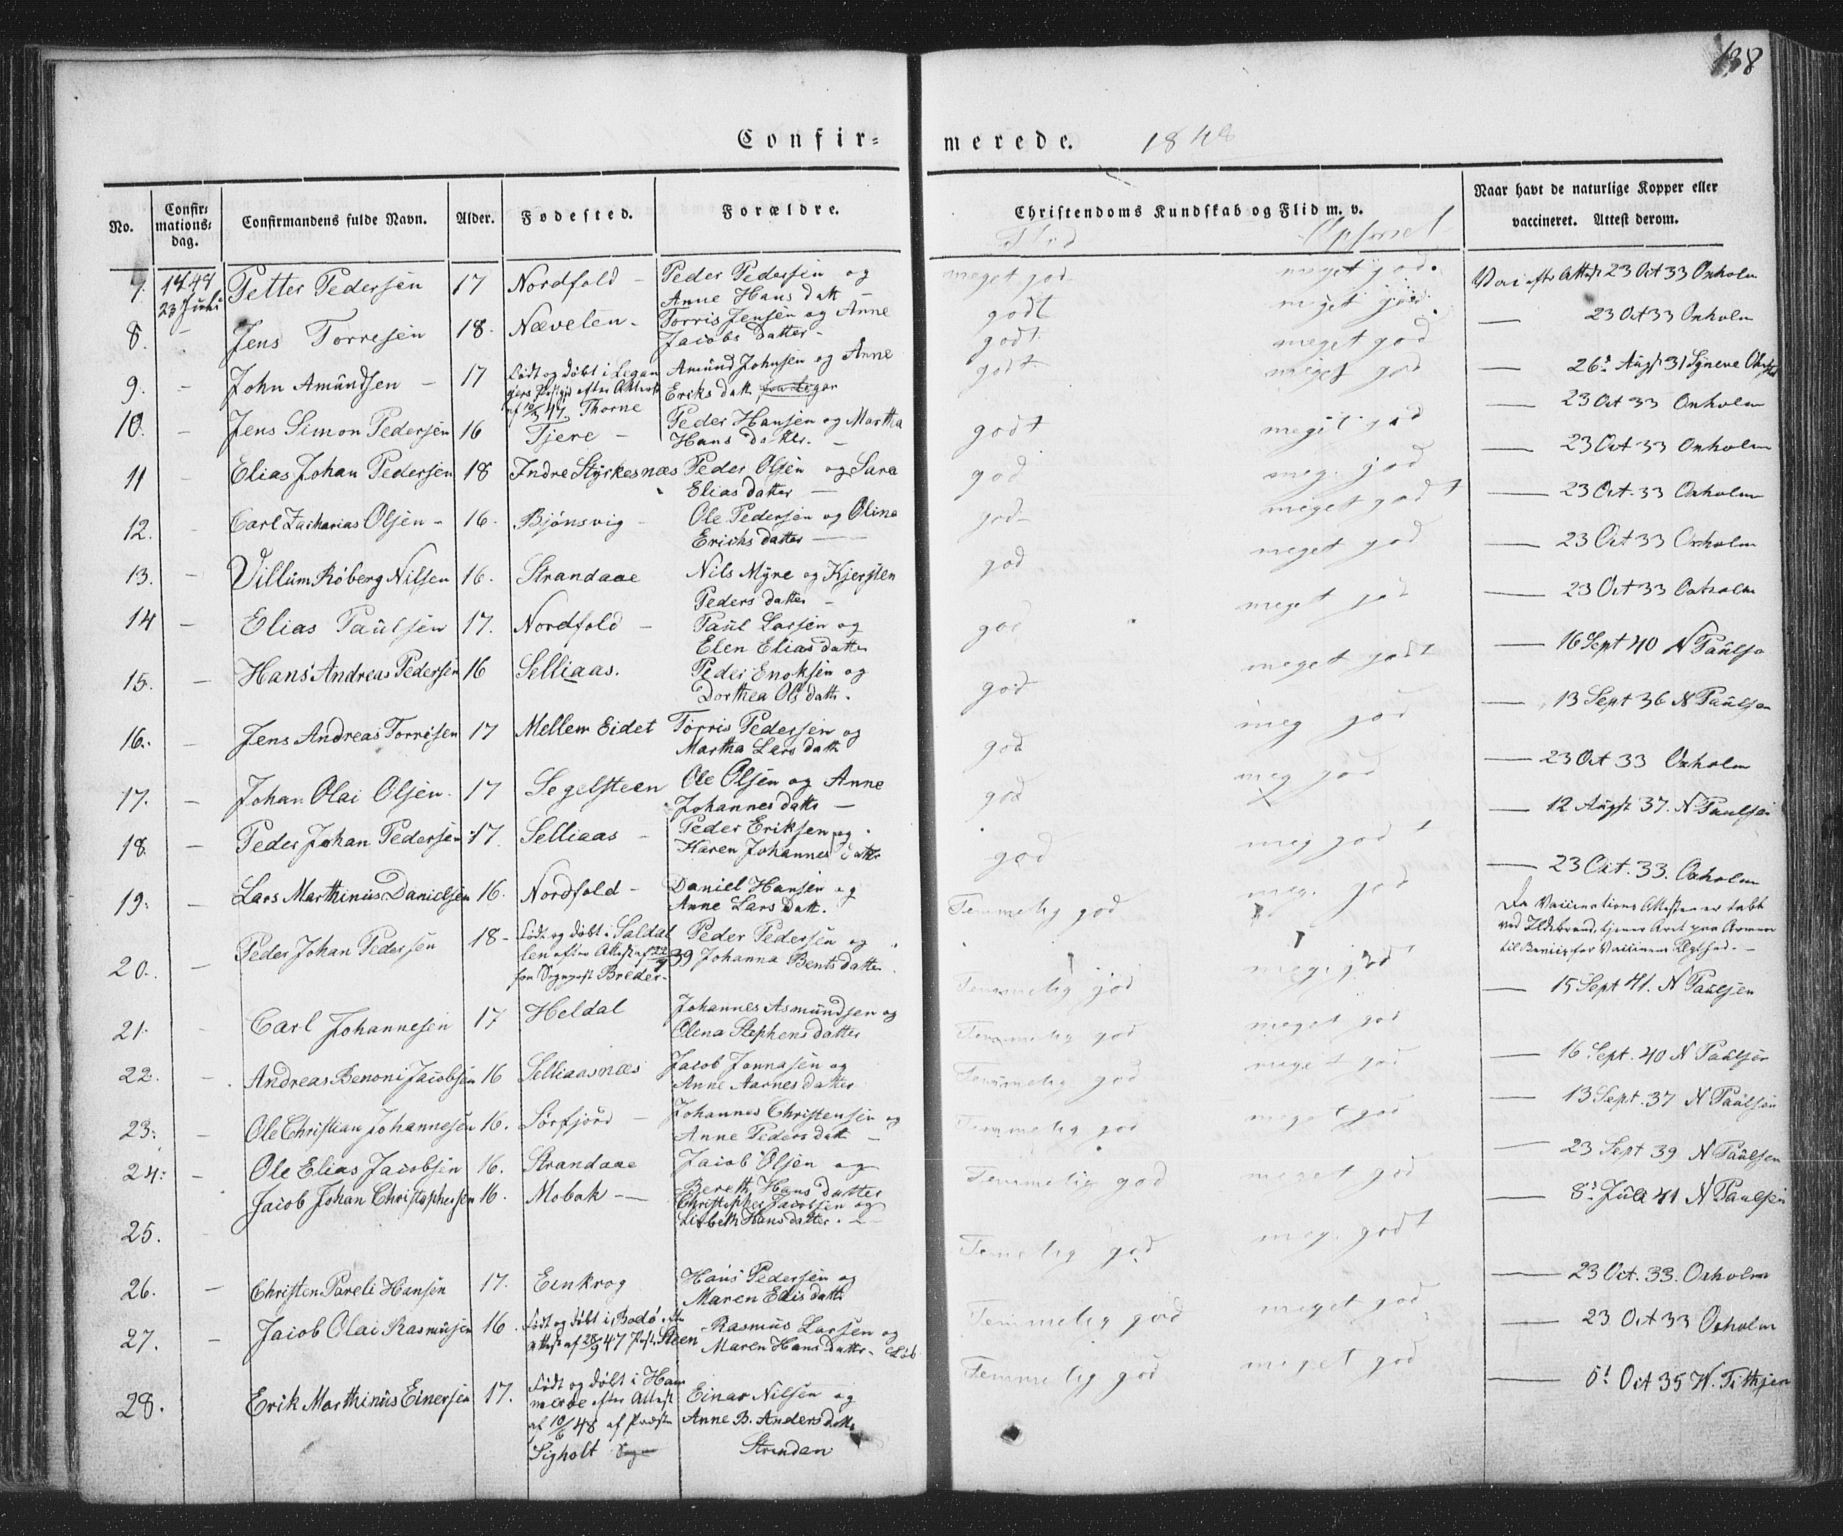 138
Confir= merede. 1848
No. Confir= mations= dag. Confirmandens fulde Navn. Alder. Fodested. Forældre. Christendoms Kundskab og Flid m. v. Naar havt de naturlige Kopper eller vaccineret. Attest derom.
7. 1848 23 Juli Petter Pedersen 17 Nordfold - Peder Pedersen og Anne Hans datt - meget god meget god. 23 Oct 33 Oxholm
8. - Jens Torresen 18. Nævelen - Torris Jensen og Anne Jacobs datter - godt meget god. — 23 Oct 33 Oxholm
9. - John Amundsen - 17 Født og døbt i efter Attest af 47 Thorne Amund Johnsen og Anne Eriks datt godt meget god — 26 Augst 31
10. - Jens Simon Pedersen 16 Tjere - Peder Hansen og Martha Hans datter. - godt meget god — 23 Oct 33 Oxholm
11 - Elias Johan Pedersen 18 Indre Styrkesnæs Peder Olsen og Sara Elias datter — godt meget god — 23 Oct 33 Oxholm
12. - Carl Zacharias Olsen - 16. Bjønsvig - Ole Pedersen og Oline Ericks datter — god meg. god — 23 Oct. 33 Oxholm
13. - Villum Røberg Nilsen 16. Strandaae Nils Myre og Kjersten Peders datter - god meget godt — 23 Oct 33 Oxholm
14 - Elias Paulsen 17. Nordfold - Paul Larsen og Elen Elias datter god meget god — 23 Oct 33 Oxholm
15. - Hans Andreas Pedersen 16 Selliaas. Peder Enoksen og Dorthea Ols datt. god meget god — 16 Sept 40 N Paulsen
16. - Jens Andreas Torrisen 17 Mellem Eidet Torris Pedersen og Martha Lars datt god meget godt — 13 Sept 36 N Paulsen
17. - Johan Olai Olsen. 17 Segelsteen Ole Olsen og Anne Johannes datt - god meg god — 23 Oct 33 Oxholm
18. - Peder Johan Pedersen 17. Selliaas - Peder Eriksen og Karen Johannes datter god meg god — 12 Augst 37. N Paulsen
19. - Lars Marthinus Danielsen 16. Nordfold - Daniel Hansen og Anne Lars datt. god meg god — 23 Oct. 33. Oxholm
20. - Peder Johan Pedersen 18 - Født og døbt i Saldalen efter Attest af 39 fra Breder - Peder Pedersen og Johanna Bents datter Temmelig god meg. god Da Vaccinations Attesten er tabt ved Ildebrand, tjener Arret paa Armen til Beviis for Vaccinens Ægthed. -
21. - Carl Johannesen 17 Heldal Johannes Asmundsen og Olena Stephens datter Temmelig god meg. god — 15 Sept 41. N Paulsen
22. - Andreas Benoni Jacobsen 16 Selliaasnæs Jacob Jonnasen og Anne Aarnes datter Temmelig god meget god — 16 Sept. 40 N Paulsen
23. - Ole Christian Johannesen 16. Sørfjord - Johannes Christensen og Anne Peders datt - Temmelig god meget god — 13 Sept. 37 N Paulsen
24. - Ole Elias Jacobsen 16. Strandaae Jacob Olsen og Bereth Hans datter Temmelig god meget god — 23 Sept 39 N Paulsen
25. Jacob Johan Christophersen 16. Mobak - Christopher Jacobsen og Lisbeth Hans datter. - Temmelig god meget god — 8 Juli 41 N Paulsen
26. - Christen Pareli Hansen 17. Eenkrog Hans Pedersen og Maren Elis datt Temelig god meg. godt — 23 Oct. 33. Oxholm
27. Jacob Olai Rasmusen 16. Født og døbt i Bodø efter Attest af 28/9 47 Steen Rasmus Larsen og Maren Hans datter. Temmelig god meget god — 23 Oct 33 Oxholm
28. Erik Marthinus Einersen 17. Født og døbt i Hammerøe efter Attest af 10/6 48 af Præsten Sigholt Einar Nilsen og Anne B. Anders datt Strindan Temmelig god meget god — 6 Oct 35